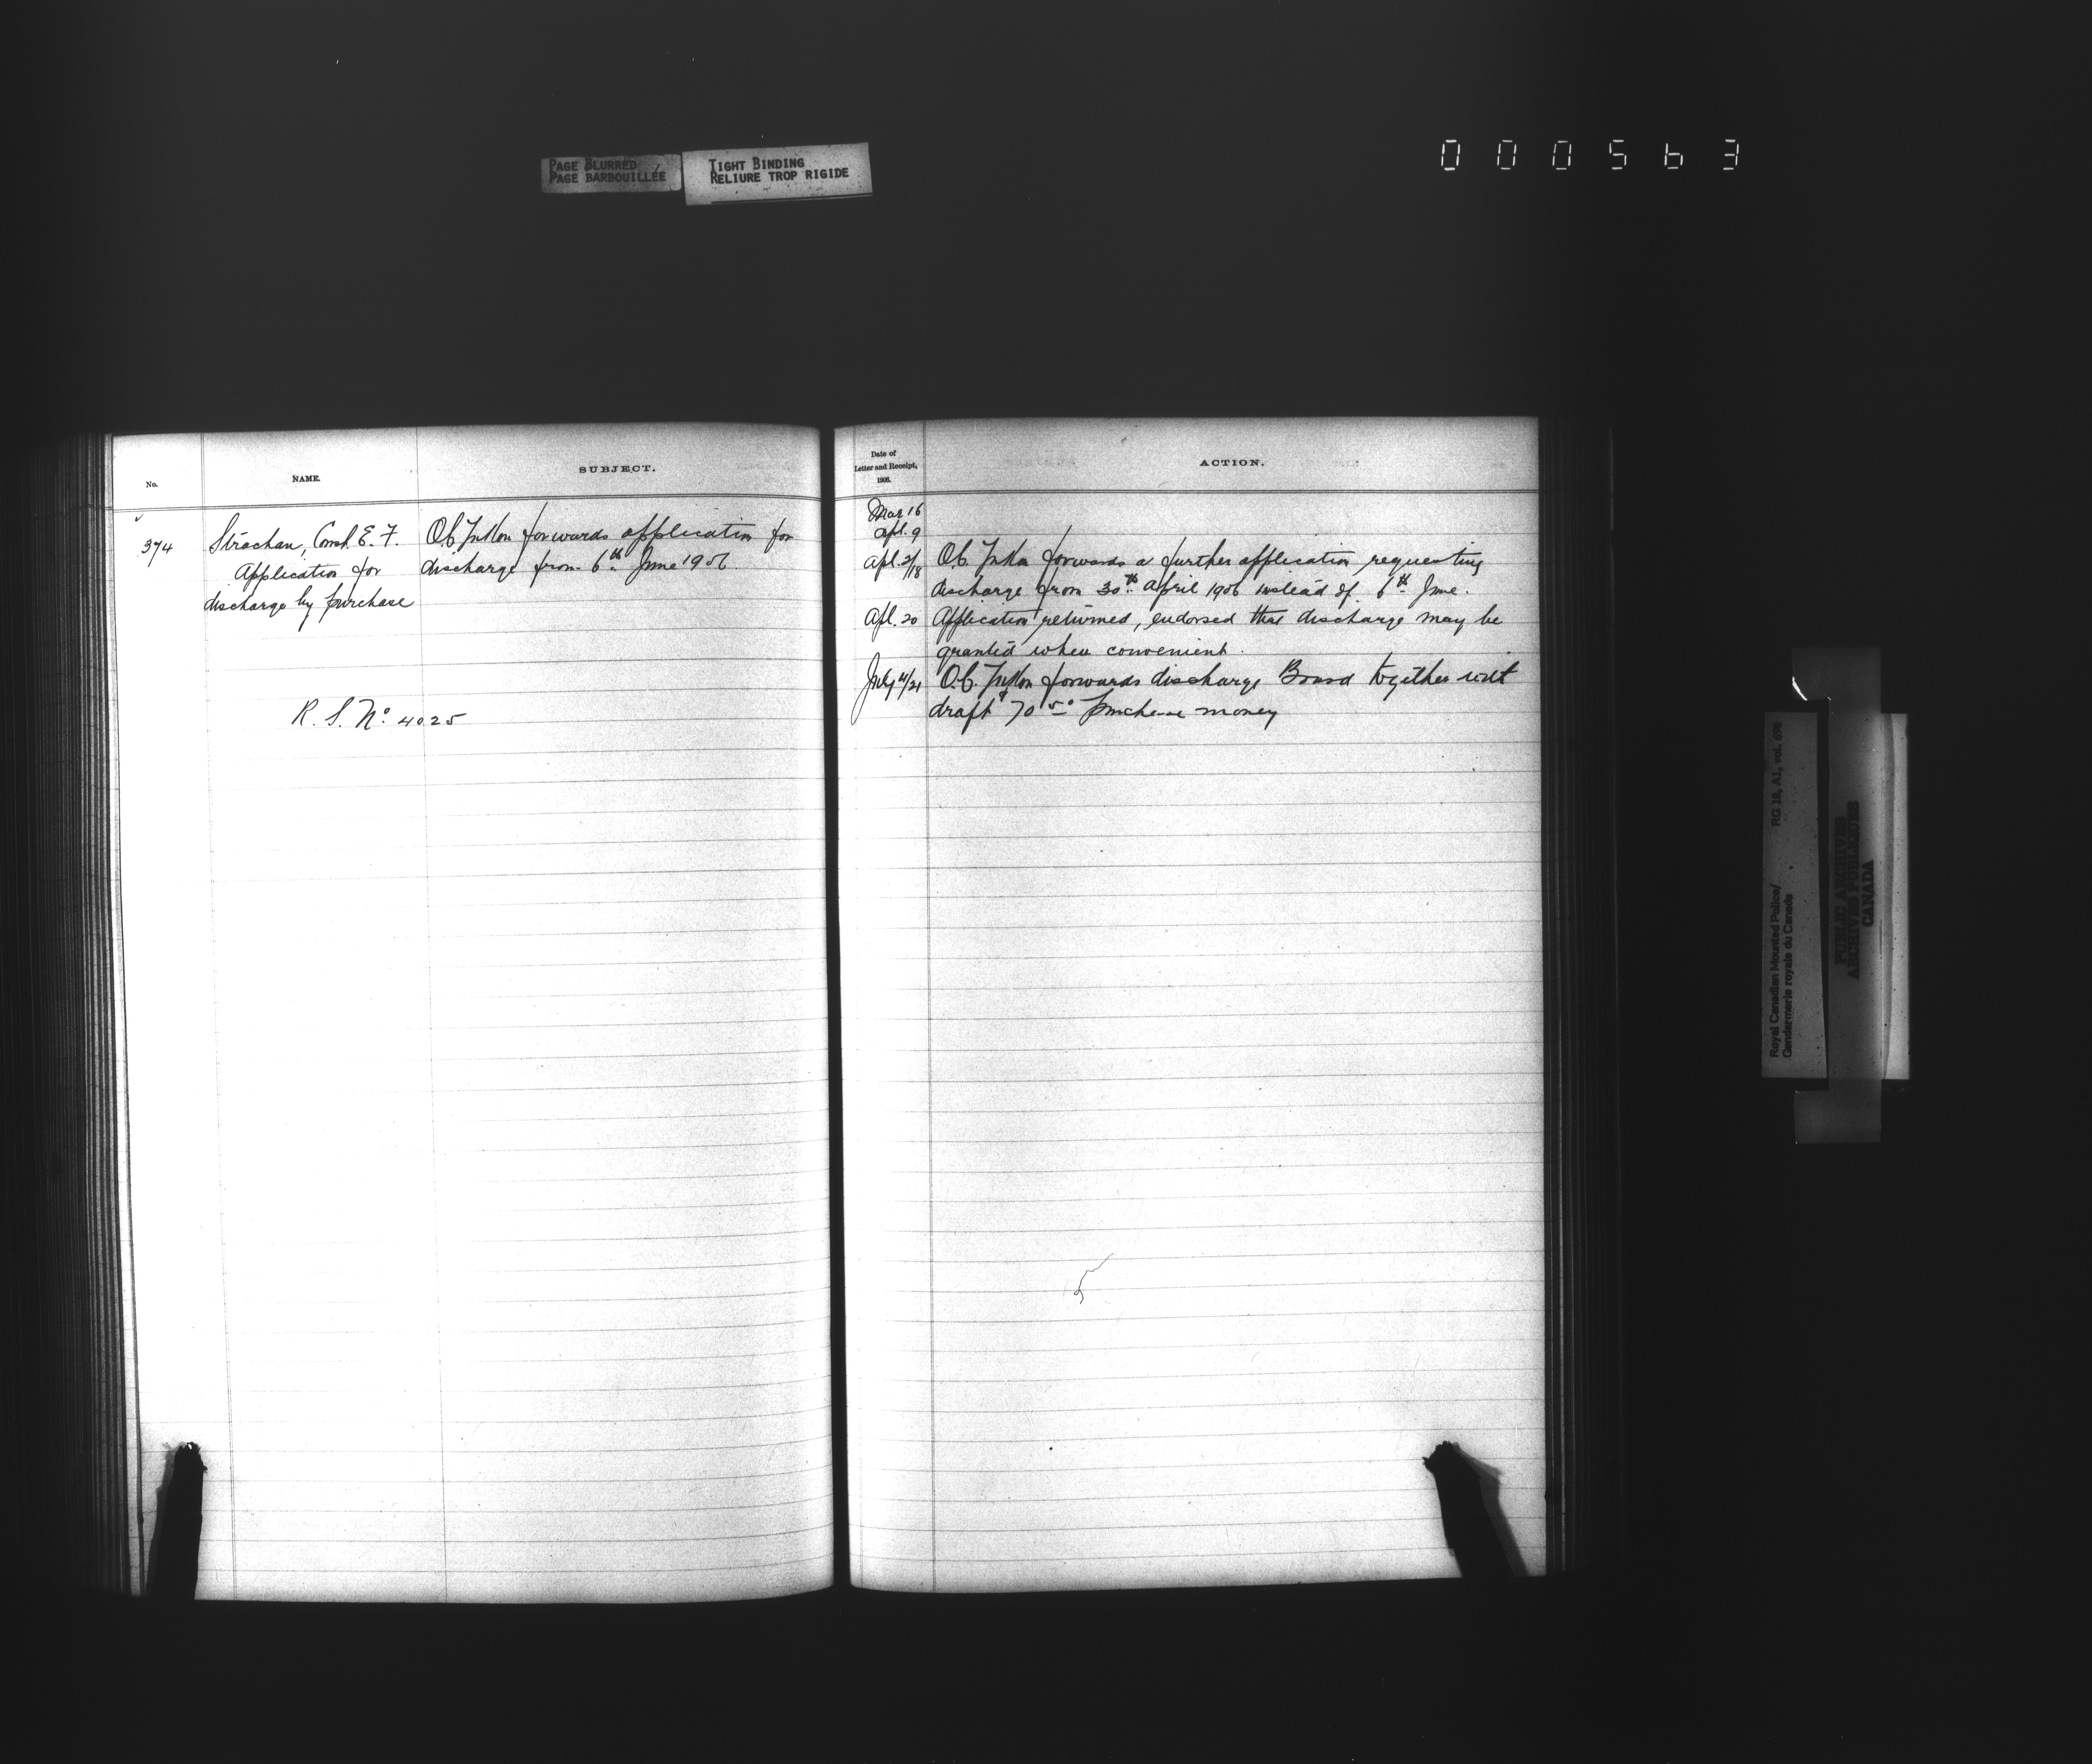 PAGE BLURRED
PAGE BARBOUILLÉE
TIGHT BINDING
RELIURE TROP RIGIDE
000563
No.
NAME.
SUBJECT.
374
Strachan, Const. E. F.
Application for
discharge by purchase
O.C. forwards application for
discharge from 6th June 1906
R. S. No. 4025
Date of
Letter and Receipt,
1906.
ACTION.
Mar 16
Apl. 9
Apl. 2/18
O.C. forwards a further application requesting
discharge from 30th April 1906 instead of 6th June.
Apl. 20
Application returned, endorsed that discharge may be
granted when convenient.
July 4/21
O.C. forwards discharge Board together with
draft $70 50 purchase money
Royal Canadian Mounted Police/
Gendarmerie royale du Canada
RG 18, A1, vol.
PUBLIC ARCHIVES
ARCHIVES PUBLIQUES
CANADA